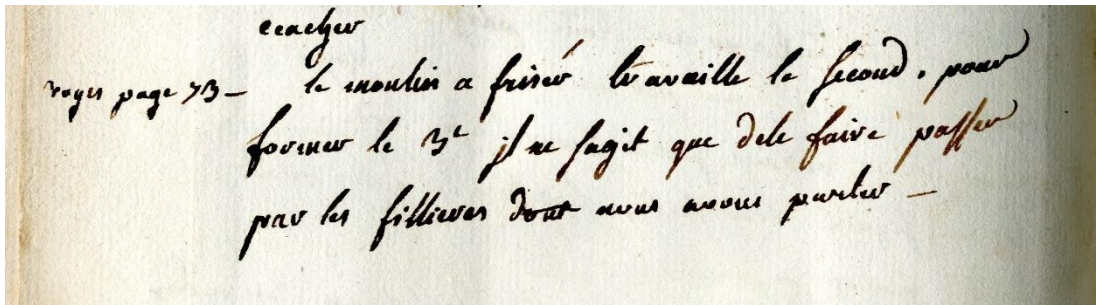 ecacher
voyes page 73 – le moulin a friser travaille le second. pour
former le 3e jl ne sagit que dele faire passer
par les fillieres dont nous avons parler –